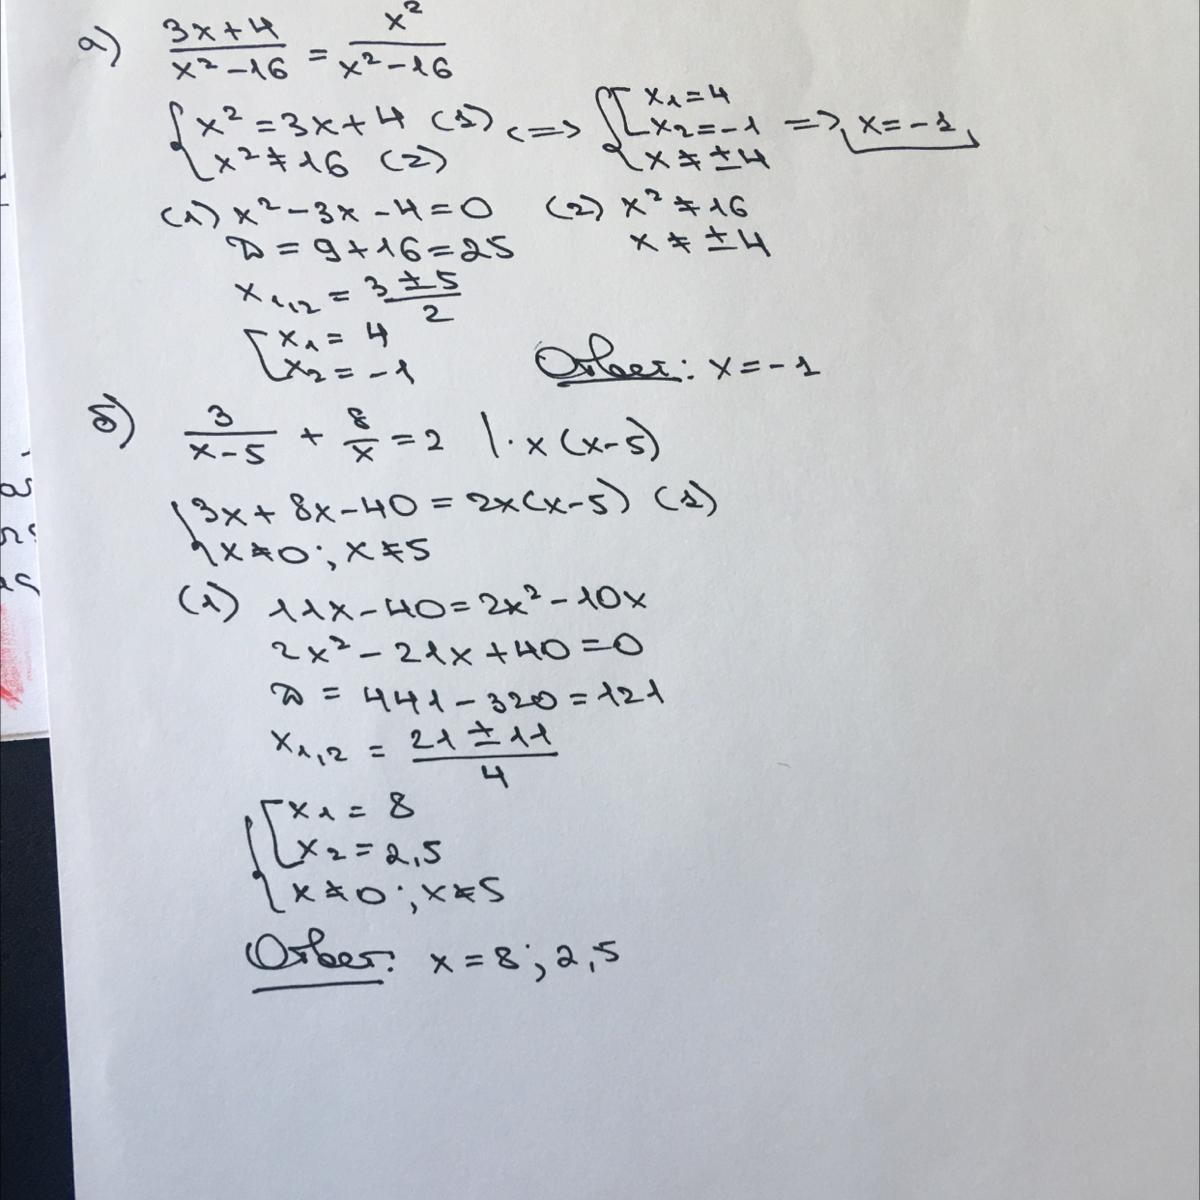 а) (3x+4)/(x²-16) = x²/(x²-16)
{x²=3x+4 (1) {x²≠16 (2) <=> {[x₁=4 [x₂=-1 {x≠±4 => x=-1
(1) x²-3x-4=0 (2) x²≠16
D=9+16=25 x≠±4
x₁,₂ = (3±5)/2
[x₁=4
[x₂=-1 Ответ: x=-1
б) 3/(x-5) + 8/x = 2 |·x(x-5)
{3x+8x-40=2x(x-5) (1)
{x≠0; x≠5
(1) 11x-40=2x²-10x
2x²-21x+40=0
D=441-320=121
x₁,₂ = (21±11)/4
{[x₁=8
[x₂=2,5
{x≠0; x≠5
Ответ: x=8; 2,5